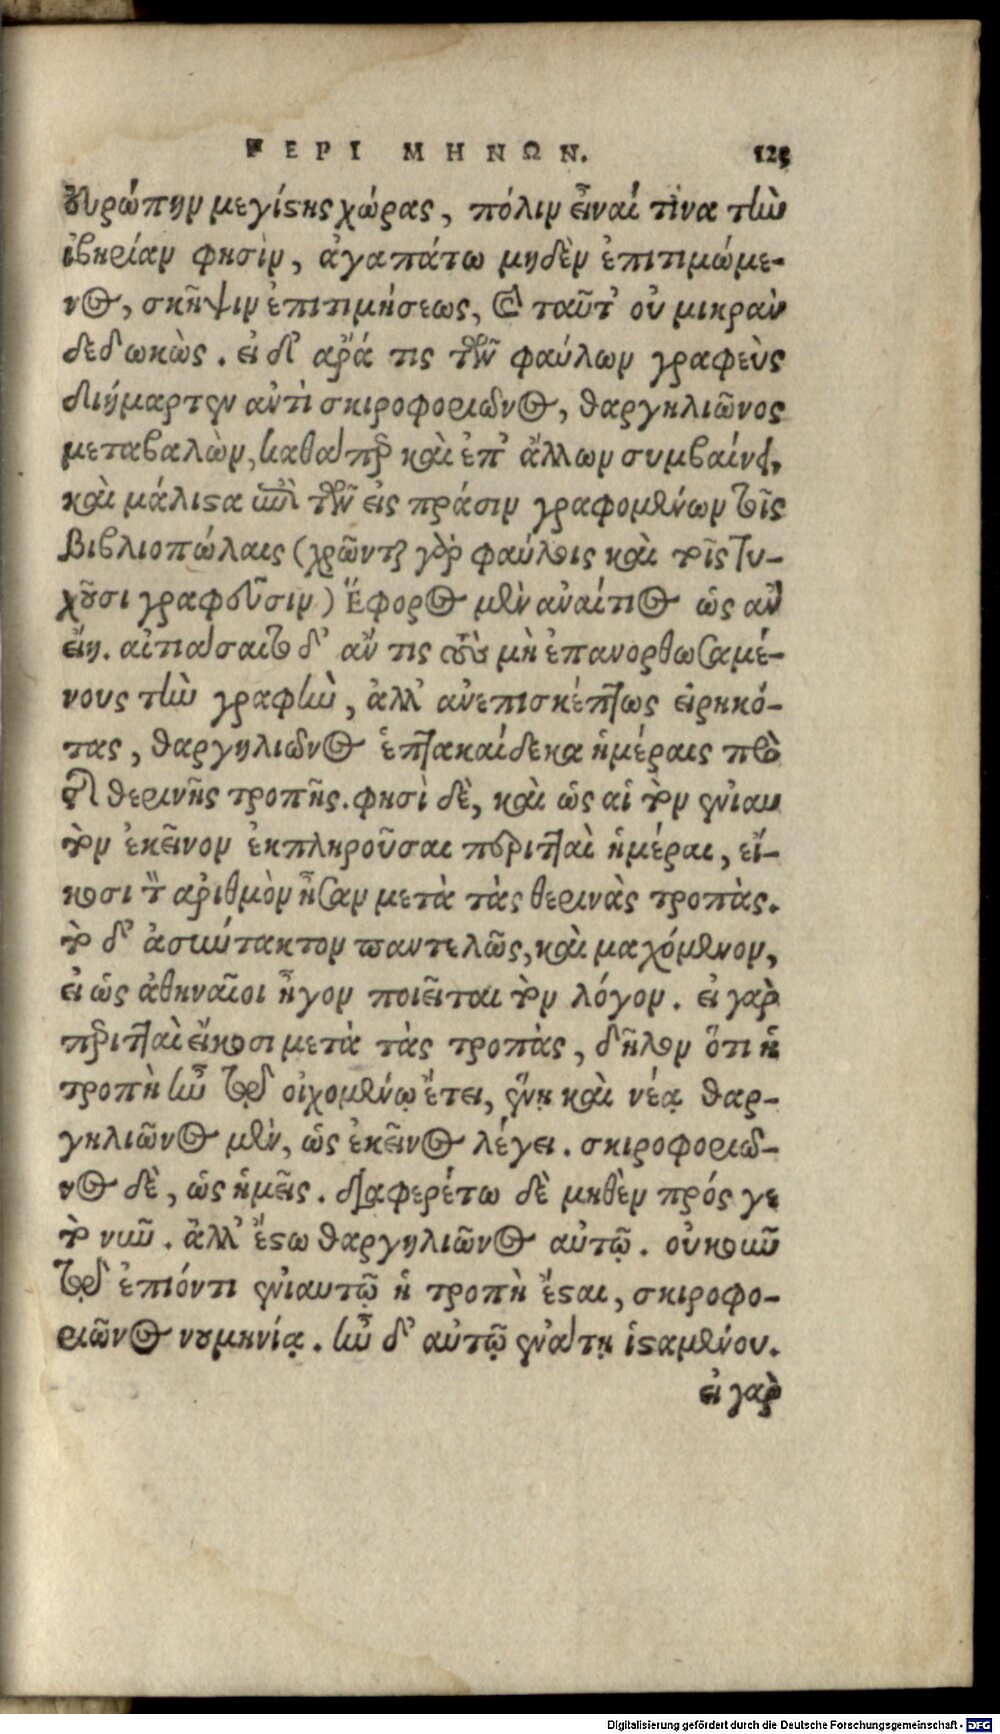 ΠΕΡΙ ΜΗΝΩΝ. 125
ευρώπην μεγίστης χώρας, πόλιν εἶναί τινα τὴν
ἰβηρίαν φησὶν, ἀγαπάτω μηδὲν ἐπιτιμώμε-
νος, σκῆψιν ἐπιτιμήσεως, καὶ ταῦτ' οὐ μικρὰν
δεδωκὼς. εἰ δ' ἄρά τις τῶν φαύλων γραφεὺς
διήμαρτεν ἀντὶ σκιροφοριῶνος, θαργηλιῶνος
μεταβαλὼν, καθάπερ καὶ ἐπ' ἄλλων συμβαίνει,
καὶ μάλιστα ἐπὶ τῶν εἰς πράσιν γραφομένων τοῖς
βιβλιοπώλαις (χρῶνται γὰρ φαύλοις καὶ τοῖς τυ-
χοῦσι γραφεῦσιν) Ἔφορος μὲν ἀναίτιος ὡς ἂν
εἴη. αἰτιάσαιτο δ' ἄν τις τοὺς μὴ ἐπανορθωσαμέ-
νους τὴν γραφὴν, ἀλλ' ἀνεπισκέπτως εἰρηκό-
τας, θαργηλιῶνος ἑπτακαίδεκα ἡμέραις πρὸ
τῆς θερινῆς τροπῆς. φησὶ δὲ, καὶ ὡς αἱ τὸν ἐνιαυ
τὸν ἐκεῖνον ἐκπληροῦσαι περιτταὶ ἡμέραι, εἴ-
κοσι τὸν ἀριθμὸν ἦσαν μετὰ τὰς θερινὰς τροπὰς.
τὸ δ' ἀσύντακτον παντελῶς, καὶ μαχόμενον,
εἰ ὡς ἀθηναῖοι ἦγον ποιεῖται τὸν λόγον. εἰ γὰρ
περιτταὶ εἴκοσι μετὰ τὰς τροπὰς, δῆλον ὅτι ἡ
τροπὴ ἦν τῷ οἰχομένῳ ἔτει, ἕνῃ καὶ νέᾳ θαρ-
γηλιῶνος μὲν, ὡς ἐκεῖνος λέγει. σκιροφοριῶ-
νος δὲ, ὡς ἡμεῖς. διαφερέτω δὲ μηθὲν πρός γε
τὸ νῦν. ἀλλ' ἔστω θαργηλιῶνος αὐτῷ. οὐκοῦν
τῷ ἐπιόντι ἐνιαυτῷ ἡ τροπὴ ἔσται, σκιροφο-
ριῶνος νουμηνίᾳ. ἦν δ' αὐτῷ ἐνάτῃ ἱσταμένου.
εἰ γὰρ
Digitalisierung gefördert durch die Deutsche Forschungsgemeinschaft - DFG